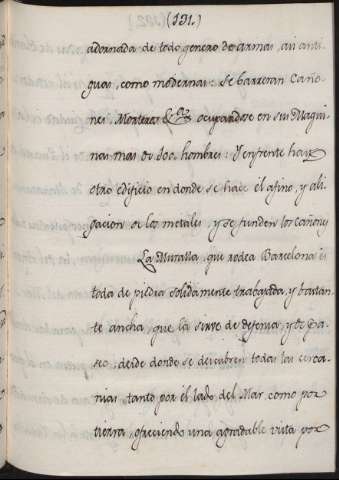 (191.)
adornada de todo genero de armas, asi anti-
guas, como modernas: se barrenan Caño-
nes Morteros &ra ocupandose en sus Maqui-
nas mas de 300. hombres: Y enfrente hay
otro edificio en donde se hace el afino, y ali-
gacion de los metales, y se funden los cañones
La Muralla, que rodea Barcelona es
toda de piedra solidamente trabajada, y bastan-
te ancha, que la sirve de defensa, y de pa-
seo, desde donde se descubren todas las cerca-
nias tanto por el lado del Mar como por
tierra, ofreciendo una agradable vista por